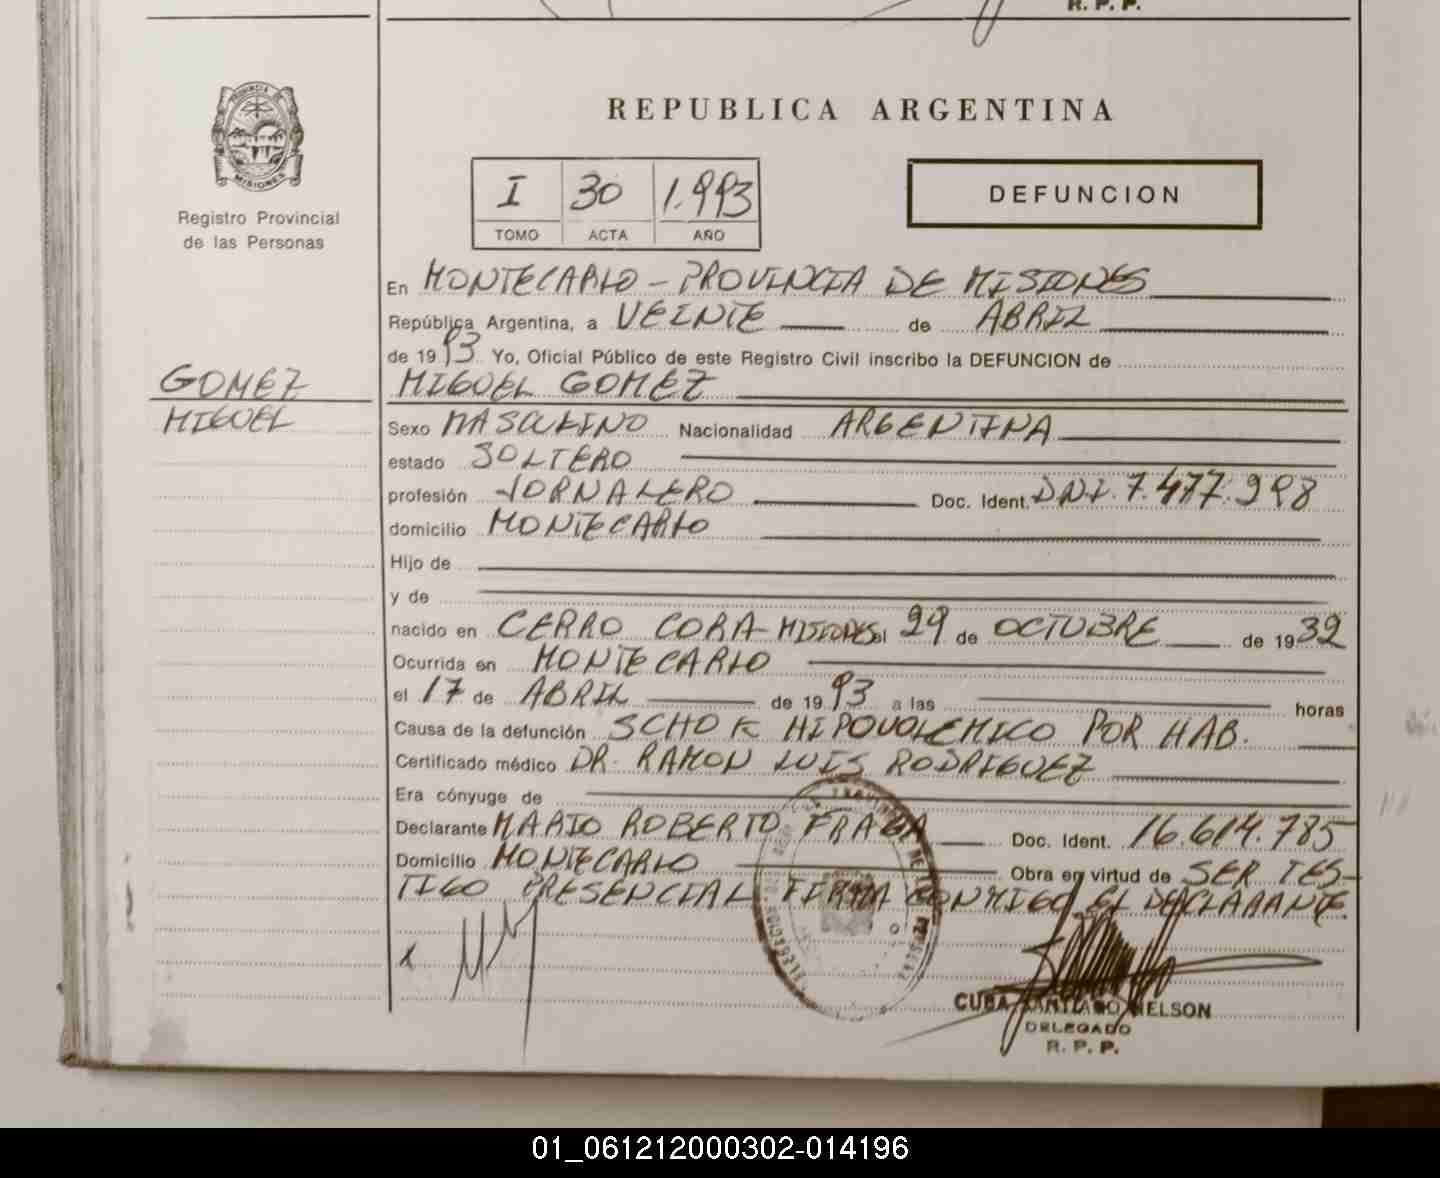 R. P. P.
PROVINCIA DE
MISIONES
Registro Provincial
de las Personas
REPUBLICA ARGENTINA
I 30 1.993
TOMO ACTA AÑO
DEFUNCION
En MONTECARLO - PROVINCIA DE MISIONES
República Argentina, a VEINTE de ABRIL
de 1993 Yo, Oficial Público de este Registro Civil inscribo la DEFUNCION de
GOMEZ
MIGUEL
MIGUEL GOMEZ
Sexo MASCULINO Nacionalidad ARGENTINA
estado SOLTERO
profesión JORNALERO Doc. Ident. DNI. 7.477.998
domicilio MONTECARLO
Hijo de
y de
nacido en CERRO CORA - MISIONES el 29 de OCTUBRE de 1932
Ocurrida en MONTECARLO
el 17 de ABRIL de 1993 a las horas
Causa de la defunción SCHOK HIPOVOLEMICO POR HAB.
Certificado médico DR. RAMON LUIS RODRIGUEZ
Era cónyuge de
Declarante MARIO ROBERTO FRAGA Doc. Ident. 16.614.785
Domicilio MONTECARLO Obra en virtud de SER TES-
TIGO PRESENCIAL FIRMA CONMIGO EL DECLARANTE.
CUBA SANTIAGO NELSON
DELEGADO
R. P. P.
01_061212000302-014196